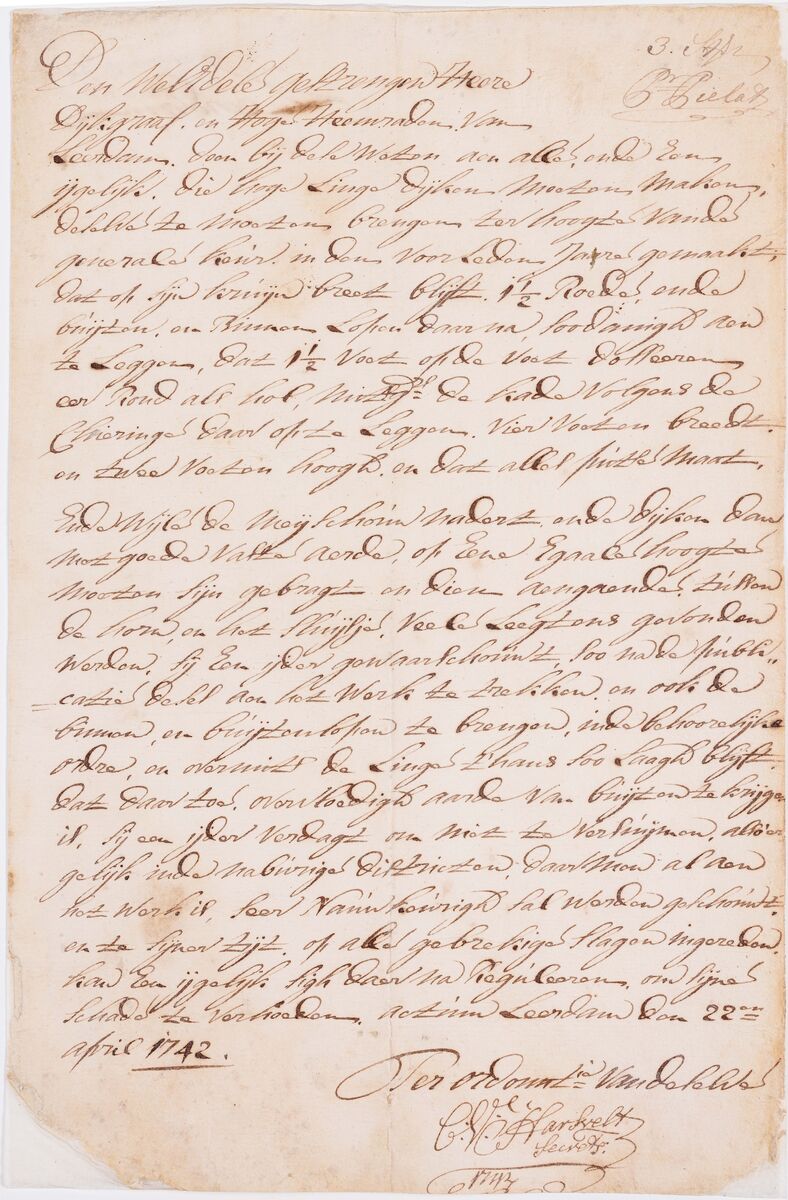 3. Afs
Pr Pielat
Den WelEdele gestrengen Heere
Dijkgraaf. en Hoge Heemraden van
Leerdam. doen bij dese Weten aen alle, ende Een
ijgelijk. die hoge Linge Dijken Moeten Maken,
deselve te Moeten brengen ter hoogte vande
generale keur. in den voorLeden Jaare gemaakt,
dat op sijn kruijn breet blijft. 1½ Roede, ende
buijten, en Binnen Lopen daar na, soodanigh aen
te Leggen, dat 1½ voet op de voet dosseeren
eer Rond als hol, de kade volgens de
Chieringe daar op te Leggen. vier voeten breedt.
en twee voeten hoogh. en dat alles putse maat.
Ende Wijle de Meijschouw nadert, ende dijken dan
met goede vaste aerde, op Eene Egaale hoogte
moeten sijn gebragt en dien aengaende, tussen
de horn, en het sluijsje, veele Leegtens gevonden
werden, sij Een ijder gewaarschouwt, soo na de publi-
catie deses aen het Werk te trekken. en ook de
binnen, en buijtenlopen te brengen, inde behoorelijke
ordre, en overmits de Linge t'hans soo Laagh blijft.
dat daar toe. overvloedigh aarde van buijten te krijgen
is, sij een ijder verdagt om niet te versuijmen, alsoo er
gelijk inde nabuirige districten, daar Men al aen
het Werk is, seer Nauwkeurigh sal werden geschouwt.
en te sijner tijt. op alle gebrekige slagen ingereden.
kan Een ijgelijk sigh daer na Reguleeren, om sijne
schade te verhoeden. actum Leerdam den 22en
april 1742.
Ter ordonntie van deselve
Harsvelt
Secrets.
1742